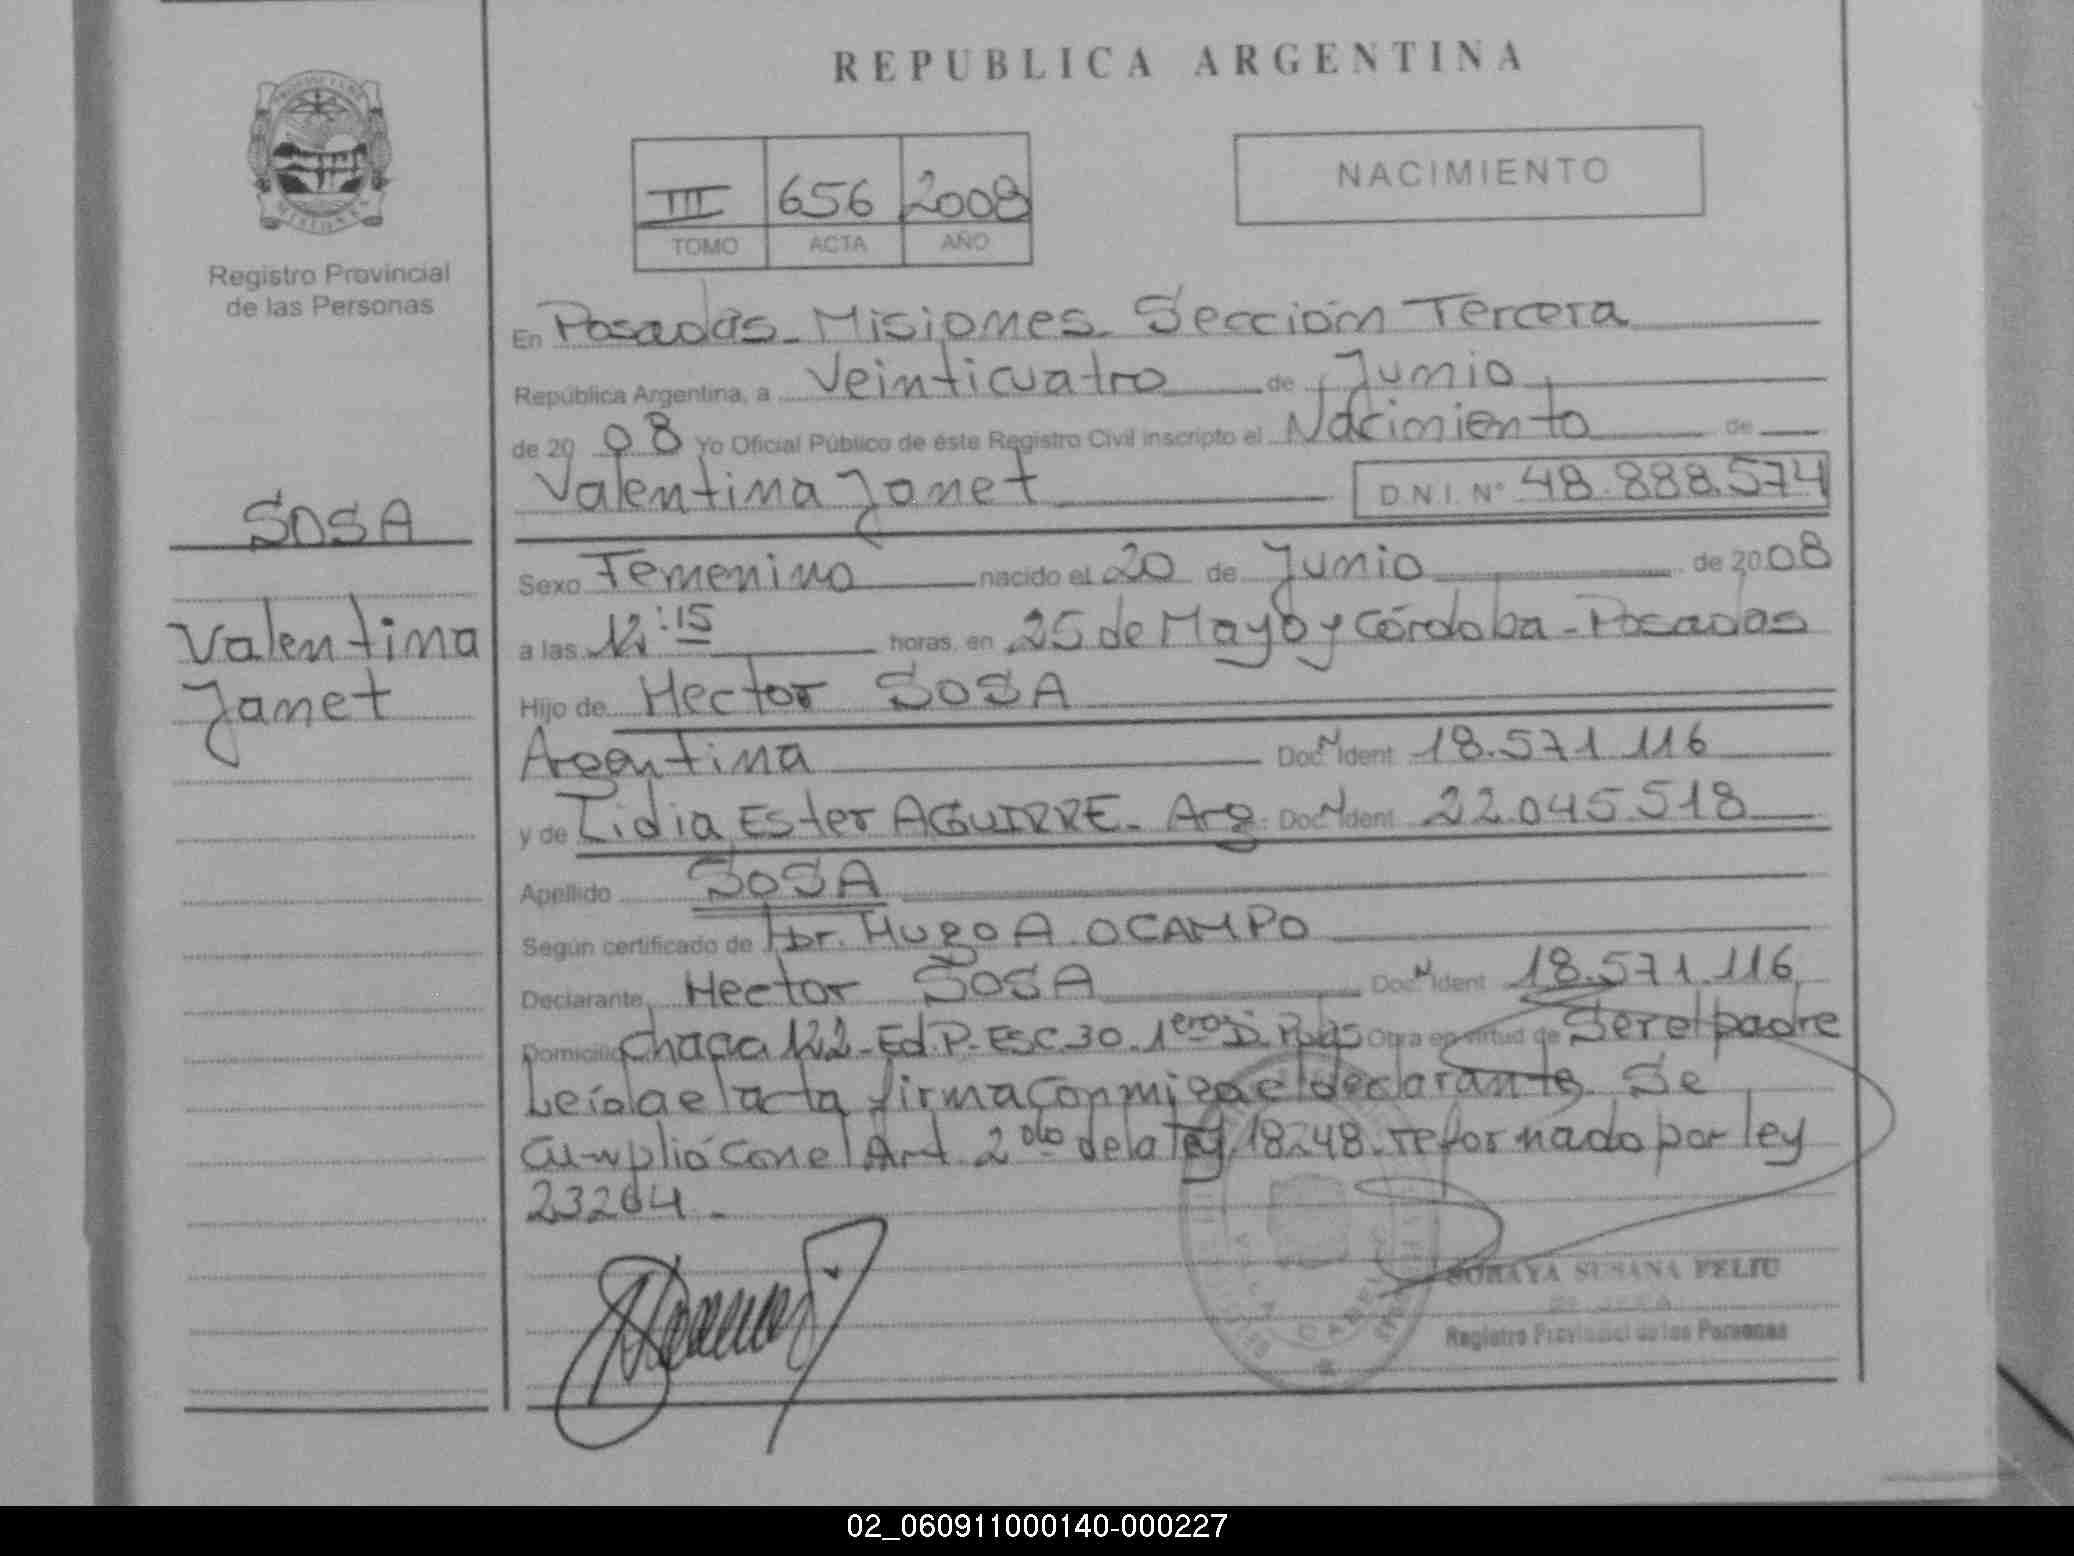 REPUBLICA ARGENTINA
NACIMIENTO
III 656 2008
TOMO ACTA AÑO
Registro Provincial
de las Personas
SOSA
Valentina
Janet
En Posadas - Misiones - Sección Tercera
República Argentina, a Veinticuatro de Junio
de 20 08 Yo Oficial Público de éste Registro Civil inscripto el Nacimiento de
Valentina Janet D.N.I. N° 48.888.574
Sexo Femenino nacido el 20 de Junio de 2008
a las 12:15 horas, en 25 de Mayo y Córdoba - Posadas
Hijo de Hector SOSA
Argentina Doc N Ident 18.571.116
y de Lidia Ester AGUIRRE - Arg. Doc N Ident 22.045.518
Apellido SOSA
Según certificado de Dr. Hugo A. OCAMPO
Declarante Hector SOSA Doc N Ident 18.571.116
Domicilio 122 - Ed. P. Esc. 30 - 1ero D. Pdas Obra en virtud de Ser el padre
Leída el acta firma conmigo el declarante Se
cumplió con el Art. 2do de la ley 18248 - reformado por ley
23264 -
SORAYA SUSANA FELTU
Registro Provincial de las Personas
02_060911000140-000227